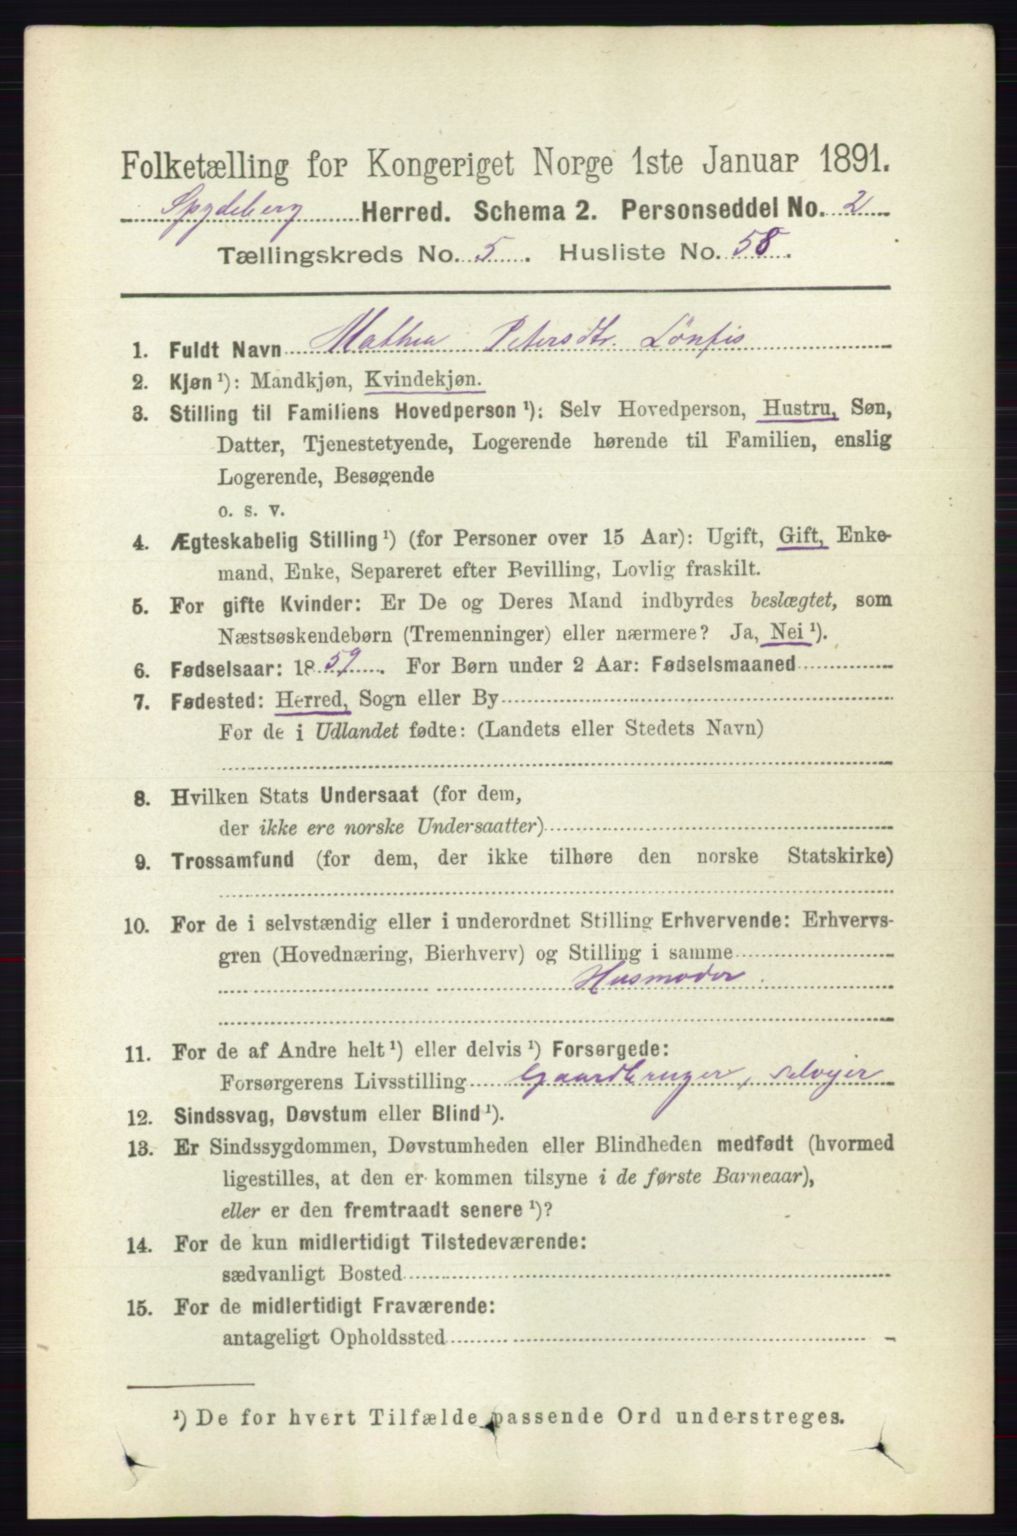 Folketælling for Kongeriget Norge 1ste Januar 1891.
Spydeberg Herred. Schema 2. Personseddel No. 2
Tællingskreds No. 5. Husliste No. 58.
1. Fuldt Navn Mathea Petersdtr.
2. Kjøn ¹): Mandkjøn, Kvindekjøn.
3. Stilling til Familiens Hovedperson ¹): Selv Hovedperson, Hustru, Søn,
Datter, Tjenestetyende, Logerende hørende til Familien, enslig
Logerende, Besøgende
o. s. v.
4. Ægteskabelig Stilling ¹) (for Personer over 15 Aar): Ugift, Gift, Enke-
mand, Enke, Separeret efter Bevilling, Lovlig fraskilt.
5. For gifte Kvinder: Er De og Deres Mand indbyrdes beslægtet, som
Næstsøskendebørn (Tremenninger) eller nærmere? Ja, Nei ¹).
6. Fødselsaar: 1859. For Børn under 2 Aar: Fødselsmaaned
7. Fødested: Herred, Sogn eller By
For de i Udlandet fødte: (Landets eller Stedets Navn)
8. Hvilken Stats Undersaat (for dem,
der ikke ere norske Undersaatter)
9. Trossamfund (for dem, der ikke tilhøre den norske Statskirke)
10. For de i selvstændig eller i underordnet Stilling Erhvervende: Erhvervs-
gren (Hovednæring, Bierhverv) og Stilling i samme
Husmoder.
11. For de af Andre helt ¹) eller delvis ¹) Forsørgede:
Forsørgerens Livsstilling Gaardbruger, selveier
12. Sindssvag, Døvstum eller Blind ¹).
13. Er Sindssygdommen, Døvstumheden eller Blindheden medfødt (hvormed
ligestilles, at den er kommen tilsyne i de første Barneaar),
eller er den fremtraadt senere ¹)?
14. For de kun midlertidigt Tilstedeværende:
sædvanligt Bosted
15. For de midlertidigt Fraværende:
antageligt Opholdssted
¹) De for hvert Tilfælde passende Ord understreges.